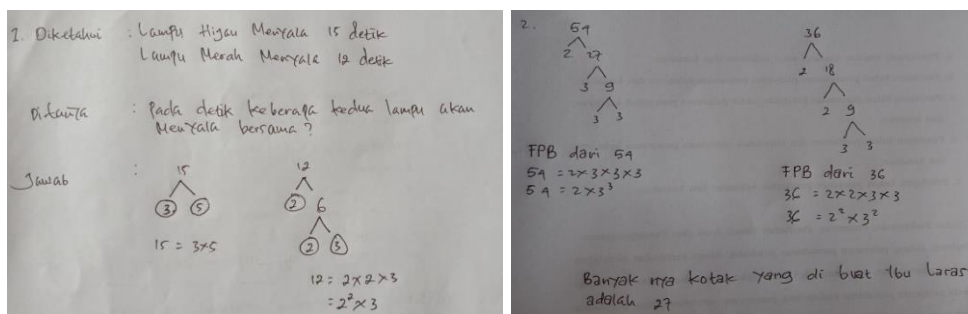 1. Diketahui : Lampu Hijau Menyala 15 detik
Lampu Merah Menyala 12 detik
Ditanya : Pada detik keberapa kedua lampu akan
Menyala bersama?
Jawab :
15
3 5
15 = 3x5
12
2 6
2 3
12 = 2x2x3
= 2² x 3
2.
54
2 27
3 9
3 3
FPB dari 54
54 = 2x3x3x3
54 = 2x3³
36
2 18
2 9
3 3
FPB dari 36
36 = 2x2x3x3
36 = 2² x 3²
Banyak nya kotak yang di buat Ibu Laras
adalah 27